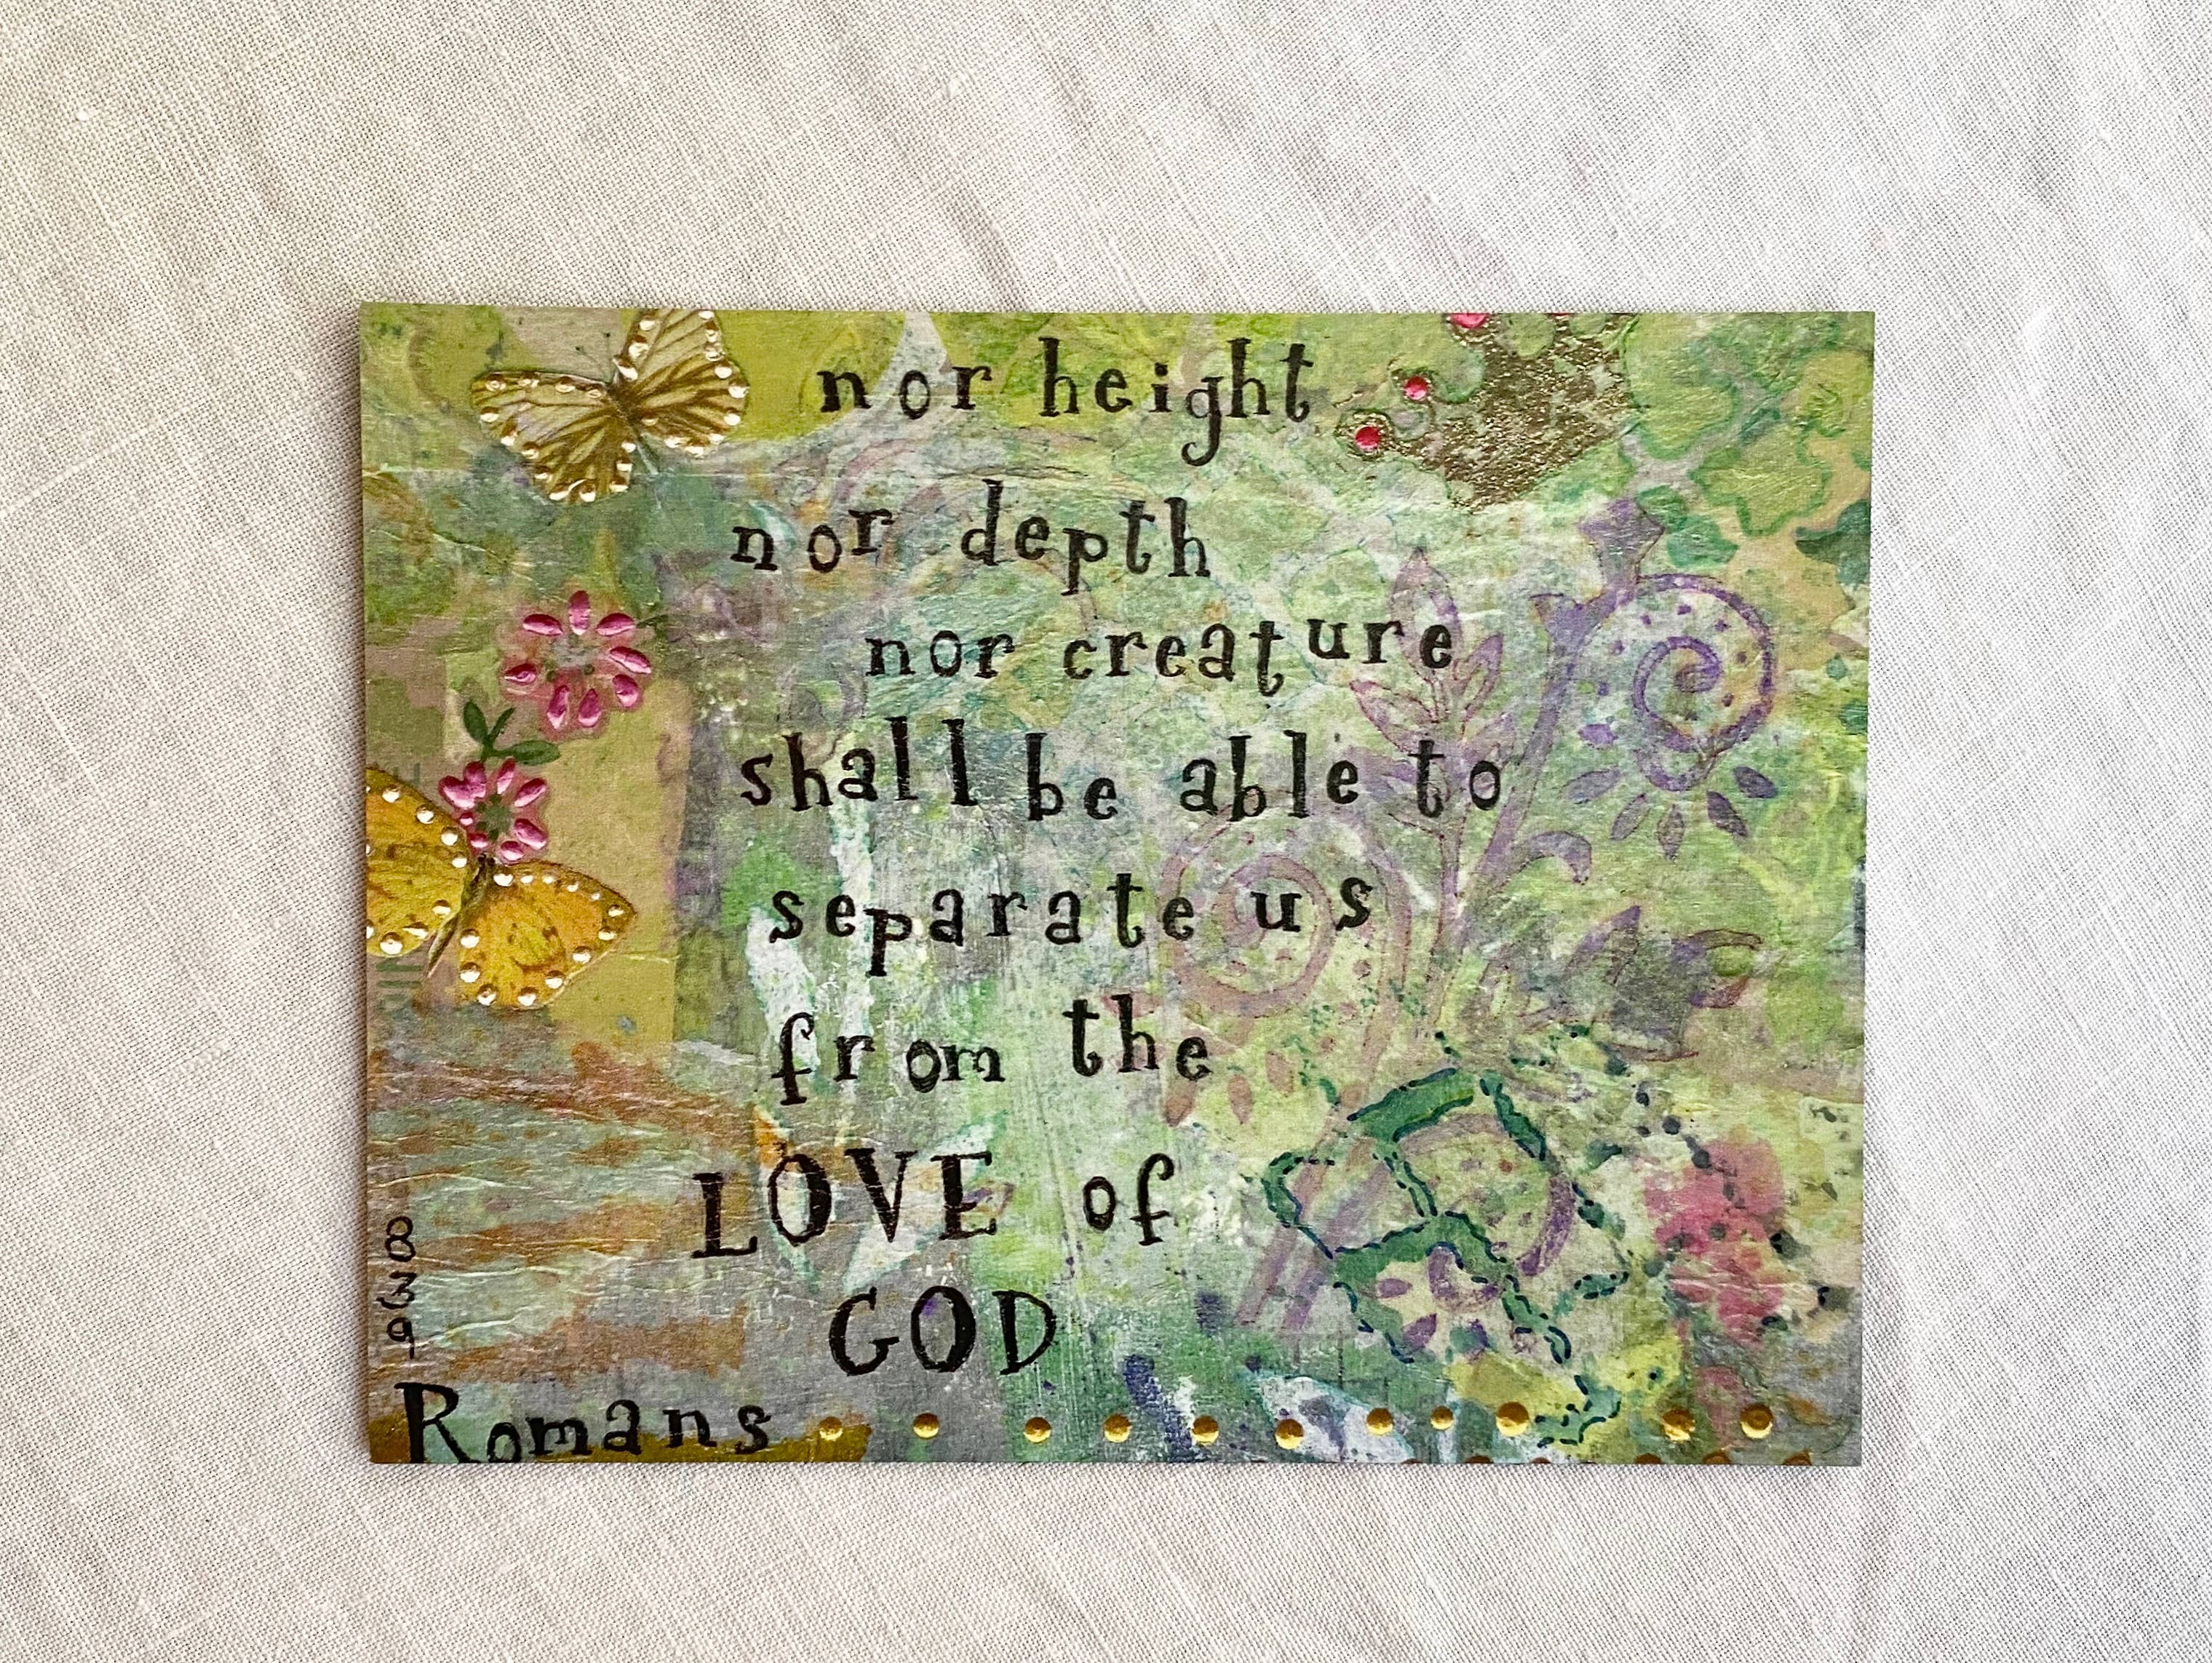 nor height
nor depth
nor creature
shall be able to
separate us
from the
LOVE of
GOD
Romans
8 39